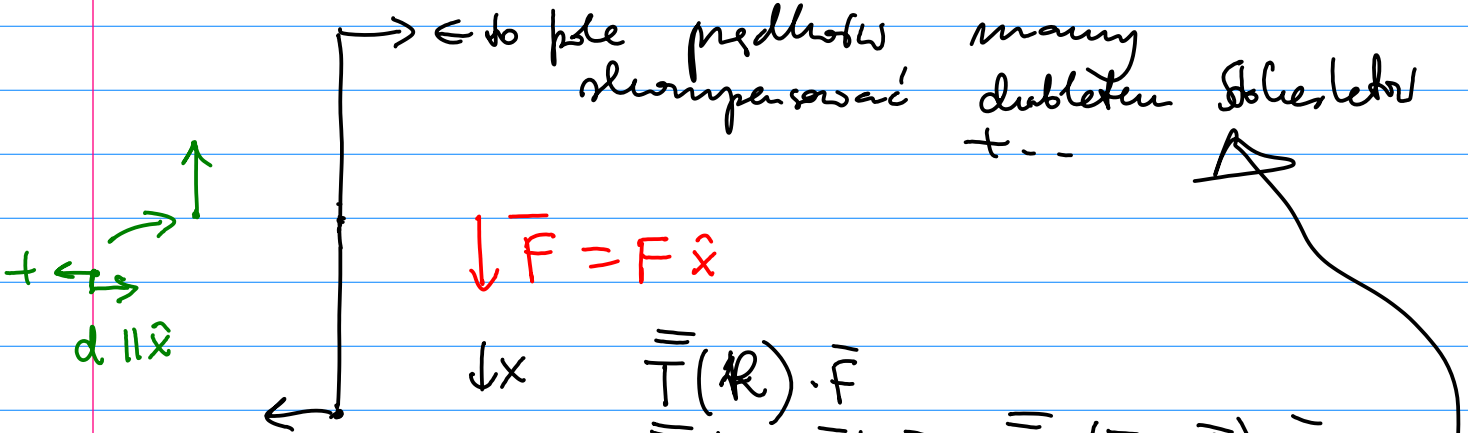 ← to pole prędkości mamy
skompensować dubletem Stokesletów
+...
F̅ = F x̂
+
d ∥ x̂
↓x T̿(R) · F̅